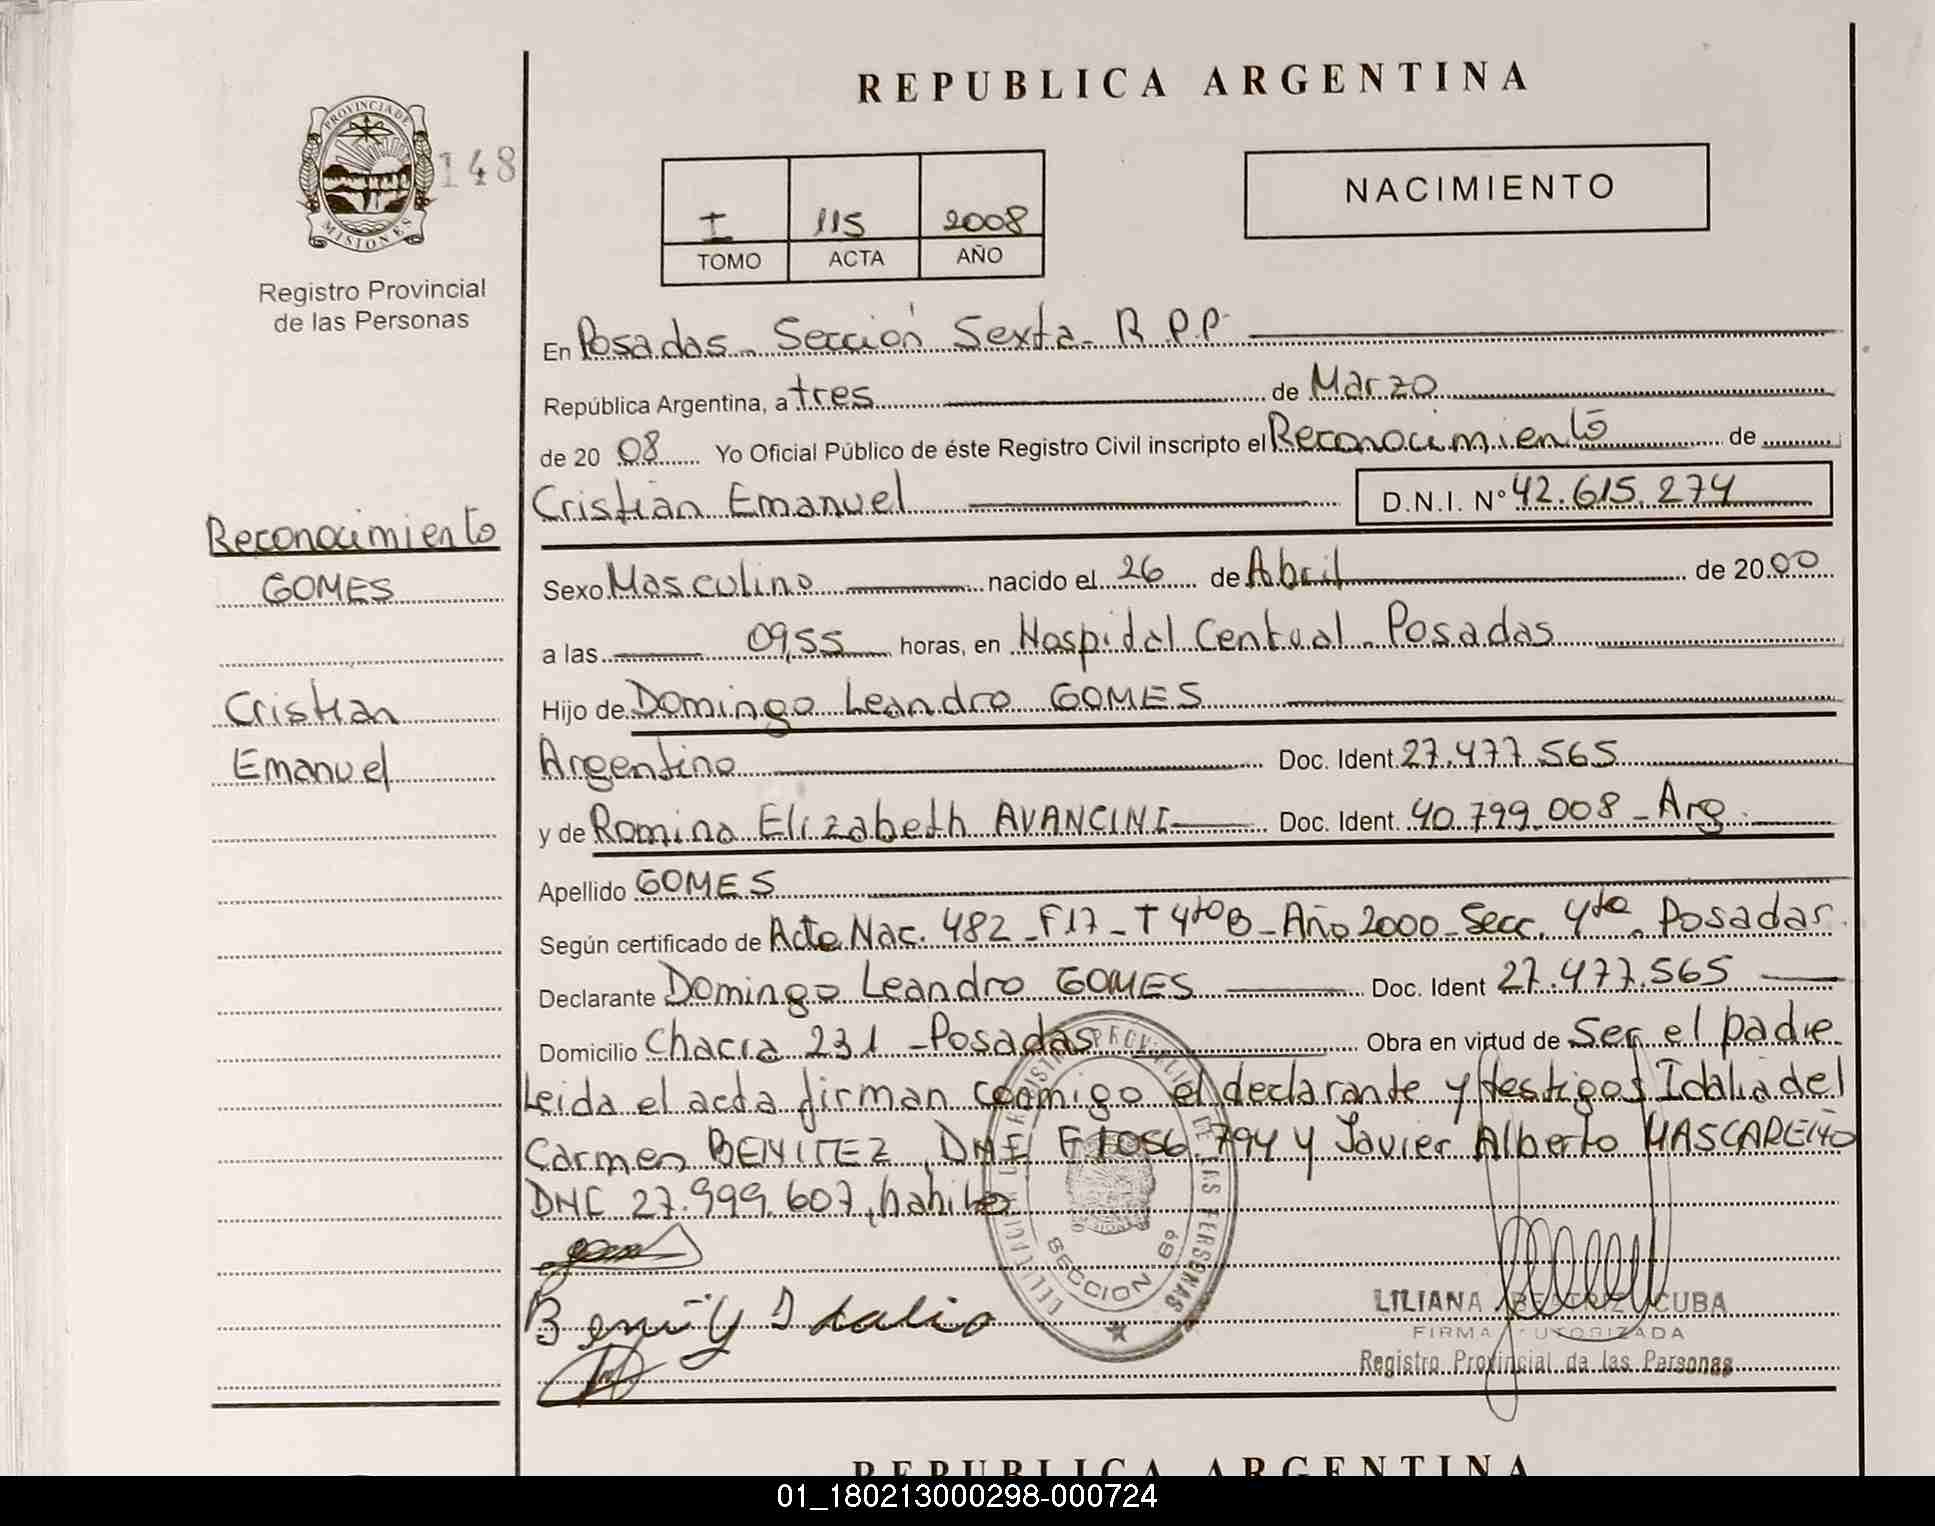 REPUBLICA ARGENTINA
PROVINCIA DE
MISIONES
148
Registro Provincial
de las Personas
I 115 2008
TOMO ACTA AÑO
NACIMIENTO
En Posadas - Sección Sexta - R.P.P.
República Argentina, a tres de Marzo
de 2008 Yo Oficial Público de éste Registro Civil inscripto el Reconocimiento de
Cristian Emanuel D.N.I. Nº 42.615.274
Reconocimiento
GOMES
Cristian
Emanuel
Sexo Masculino nacido el 26 de Abril de 2000
a las 09,55 horas, en Hospital Central - Posadas
Hijo de Domingo Leandro GOMES
Argentino Doc. Ident. 27.477.565
y de Romina Elizabeth AVANCINI Doc. Ident. 40.799.008 - Arg.
Apellido GOMES
Según certificado de Acta Nac. 482 - F17 - T 4toB - Año 2000 - Secc. 4ta. Posadas
Declarante Domingo Leandro GOMES Doc. Ident 27.477.565
Domicilio Chacra 231 - Posadas Obra en virtud de Ser el padre
Leida el acta firman conmigo el declarante y testigos Idalia del
Carmen BENITEZ, DNI F 1056.794 y Javier Alberto MASCAREÑO
DNI 27.999.607, habiles
Benitez Idalia
SECCION 6º
LILIANA BEATRIZ CUBA
FIRMA AUTORIZADA
Registro Provincial de las Personas
REPUBLICA ARGENTINA
01_180213000298-000724